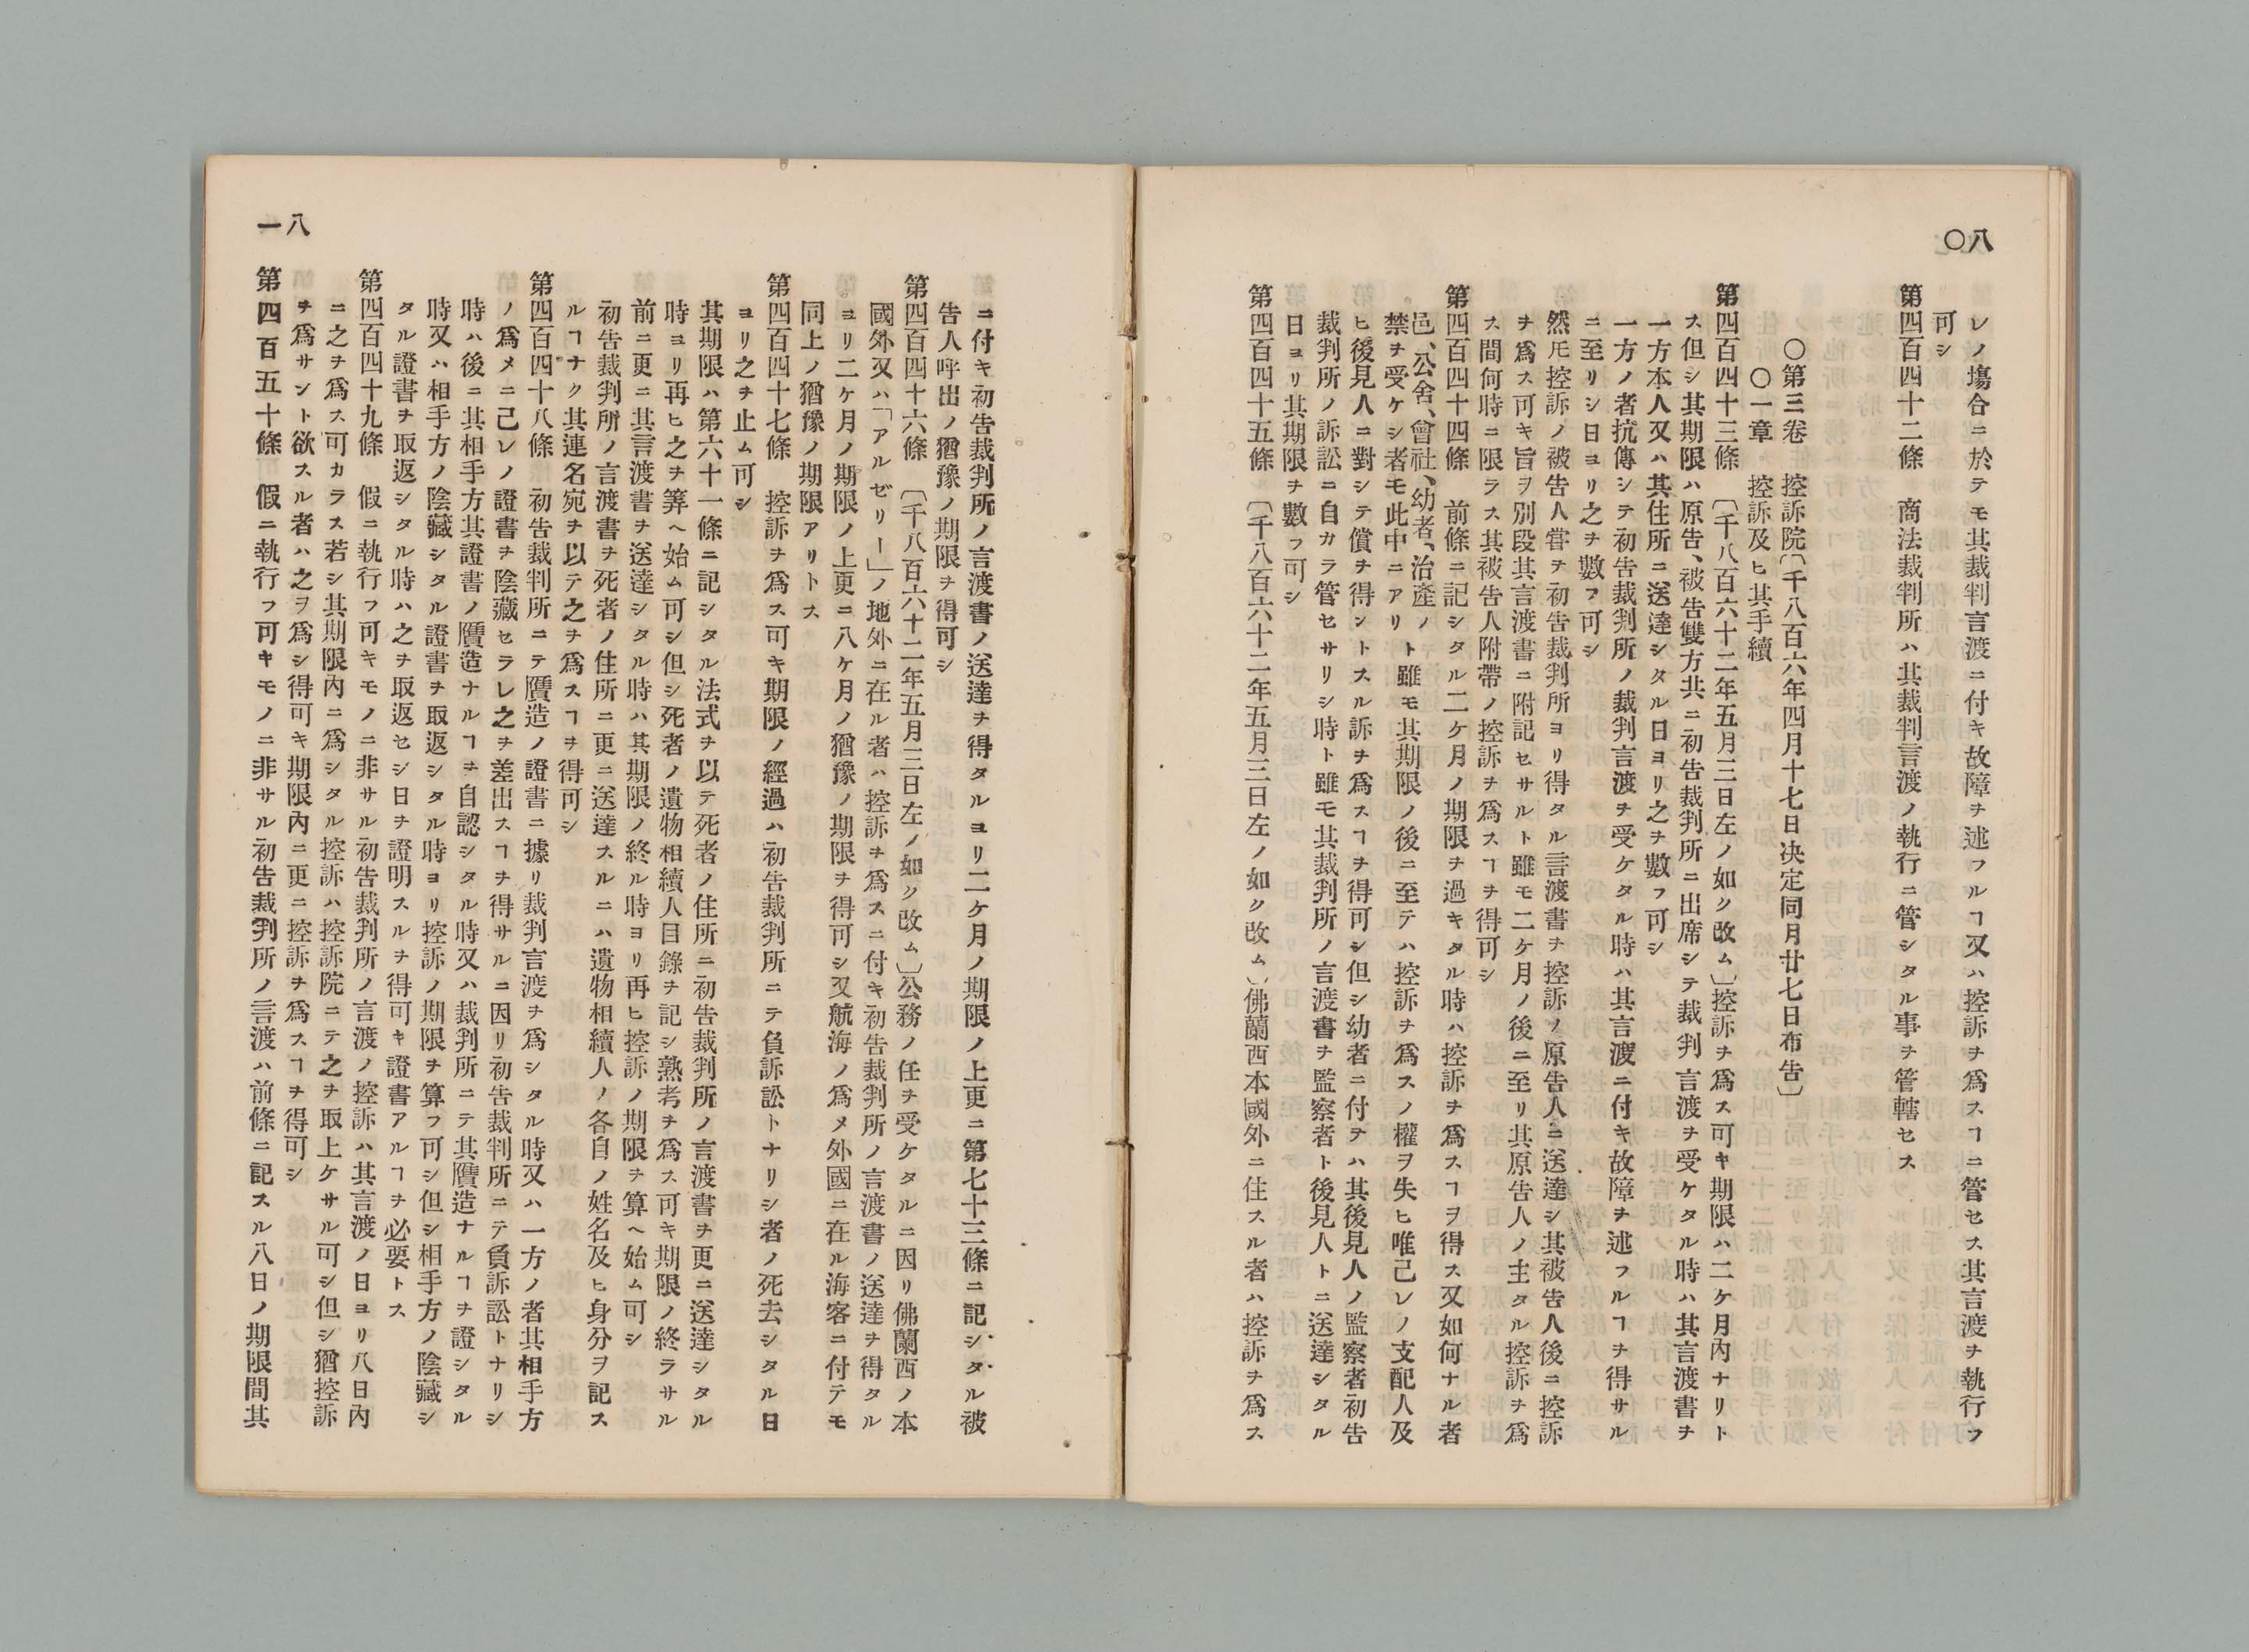 八〇
レノ塲合ニ於テモ其裁判言渡ニ付キ故障ヲ述フルヿ又ハ控訴ヲ爲スヿニ管セス其言渡ヲ執行フ
可シ
第四百四十二條　商法裁判所ハ其裁判言渡ノ執行ニ管シタル事ヲ管轄セス
〇第三卷　控訴院〔千八百六年四月十七日決定同月廿七日布告〕
〇一章　控訴及ヒ其手續
第四百四十三條　〔千八百六十二年五月三日左ノ如ク改ム〕控訴ヲ爲ス可キ期限ハ二ケ月內ナリト
ス但シ其期限ハ原告、被告雙方共ニ初告裁判所ニ出席シテ裁判言渡ヲ受ケタル時ハ其言渡書ヲ
一方本人又ハ其住所ニ送達シタル日ヨリ之ヲ數フ可シ
一方ノ者抗傳シテ初告裁判所ノ裁判言渡ヲ受ケタル時ハ其言渡ニ付キ故障ヲ述フルヿヲ得サル
ニ至リシ日ヨリ之ヲ數フ可シ
然𪜈控訴ノ被告人甞テ初告裁判所ヨリ得タル言渡書ヲ控訴ノ原告人ニ送達シ其被告人後ニ控訴
ヲ爲ス可キ旨ヲ別段其言渡書ニ附記セサルト雖モ二ケ月ノ後ニ至リ其原告人ノ主タル控訴ヲ爲
ス間何時ニ限ラス其被告人附帶ノ控訴ヲ爲スヿヲ得可シ
第四百四十四條　前條ニ記シタル二ケ月ノ期限ヲ過キタル時ハ控訴ヲ爲スヿヲ得ス又如何ナル者
邑、公舍、會社、幼者、治產ノ
禁ヲ受ケシ者モ此中ニアリ
ト雖モ其期限ノ後ニ至テハ控訴ヲ爲スノ權ヲ失ヒ唯己レノ支配人及
ヒ後見人ニ對シテ償ヲ得ントスル訴ヲ爲スヿヲ得可シ但シ幼者ニ付テハ其後見人ノ監察者初告
裁判所ノ訴訟ニ自カラ管セサリシ時ト雖モ其裁判所ノ言渡書ヲ監察者ト後見人トニ送達シタル
日ヨリ其期限ヲ數フ可シ
第四百四十五條　〔千八百六十二年五月三日左ノ如ク改ム〕佛蘭西本國外ニ住スル者ハ控訴ヲ爲ス
八一
ニ付キ初告裁判所ノ言渡書ノ送達ヲ得タルヨリ二ケ月ノ期限ノ上更ニ第七十三條ニ記シタル被
告人呼出ノ猶豫ノ期限ヲ得可シ
第四百四十六條　〔千八百六十二年五月三日左ノ如ク改ム〕公務ノ任ヲ受ケタルニ因リ佛蘭西ノ本
國外又ハ「アルゼリー」ノ地外ニ在ル者ハ控訴ヲ爲スニ付キ初告裁判所ノ言渡書ノ送達ヲ得タル
ヨリ二ケ月ノ期限ノ上更ニ八ケ月ノ猶豫ノ期限ヲ得可シ又航海ノ爲メ外國ニ在ル海客ニ付テモ
同上ノ猶豫ノ期限アリトス
第四百四十七條　控訴ヲ爲ス可キ期限ノ經過ハ初告裁判所ニテ負訴訟トナリシ者ノ死去シタル日
ヨリ之ヲ止ム可シ
其期限ハ第六十一條ニ記シタル法式ヲ以テ死者ノ住所ニ初告裁判所ノ言渡書ヲ更ニ送達シタル
時ヨリ再ヒ之ヲ筭ヘ始ム可シ但シ死者ノ遺物相續人目錄ヲ記シ熟考ヲ爲ス可キ期限ノ終ラサル
前ニ更ニ其言渡書ヲ送達シタル時ハ其期限ノ終ル時ヨリ再ヒ控訴ノ期限ヲ算ヘ始ム可シ
初告裁判所ノ言渡書ヲ死者ノ住所ニ更ニ送達スルニハ遺物相續人ノ各自ノ姓名及ヒ身分ヲ記ス
ルヿナク其連名宛ヲ以テ之ヲ爲スヿヲ得可シ
第四百四十八條　初告裁判所ニテ贋造ノ證書ニ據リ裁判言渡ヲ爲シタル時又ハ一方ノ者其相手方
ノ爲メニ己レノ證書ヲ陰藏セラレ之ヲ差出スヿヲ得サルニ因リ初告裁判所ニテ負訴訟トナリシ
時ハ後ニ其相手方其證書ノ贋造ナルヿヲ自認シタル時又ハ裁判所ニテ其贋造ナルヿヲ證シタル
時又ハ相手方ノ陰藏シタル證書ヲ取返シタル時ヨリ控訴ノ期限ヲ算フ可シ但シ相手方ノ陰藏シ
タル證書ヲ取返シタル時ハ之ヲ取返セシ日ヲ證明スルヲ得可キ證書アルヿヲ必要トス
第四百四十九條　假ニ執行フ可キモノニ非サル初告裁判所ノ言渡ノ控訴ハ其言渡ノ日ヨリ八日內
ニ之ヲ爲ス可カラス若シ其期限內ニ爲シタル控訴ハ控訴院ニテ之ヲ取上ケサル可シ但シ猶控訴
ヲ爲サント欲スル者ハ之ヲ爲シ得可キ期限內ニ更ニ控訴ヲ爲スヿヲ得可シ
第四百五十條　假ニ執行フ可キモノニ非サル初告裁判所ノ言渡ハ前條ニ記スル八日ノ期限間其